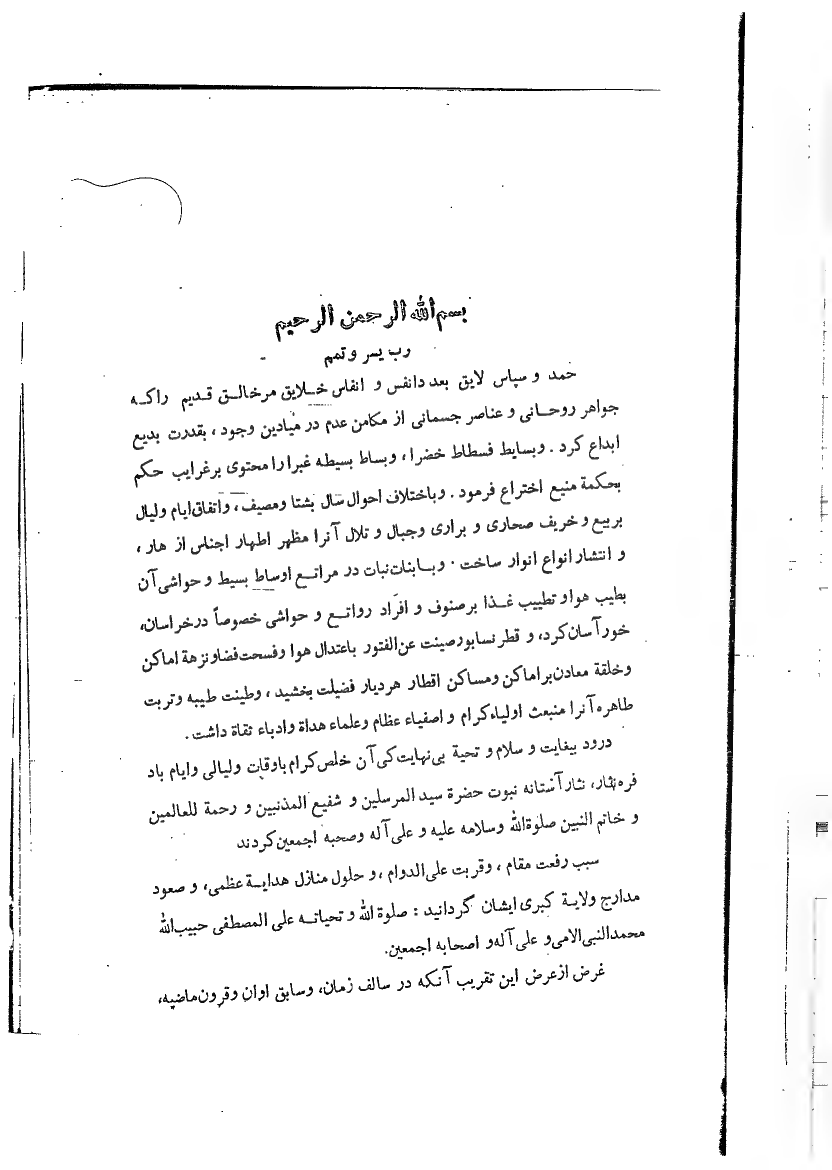 بسم‌الله الرحمن الرحیم
رب یسر و تمم
حمد و سپاس لایق بعد دانفس و انفاس خـلایق مرخالـق قـدیم راکـه
جواهر روحـانی و عناصر جسمانی از مکامن عدم در میادین وجود ، بقدرت بدیع
ابداع کرد . وبسایط فسطاط خضرا ، وبساط بسیطه غبرا را محتوی برغرایب حکم
بحکمة منیع اختراع فرمود . وباختلاف احوال سال بشتا ومصیف، واتفاق‌ایام ولیال
بربیع و خریف صحاری و براری وجبال و تلال آنرا مظهر اطهار اجناس از هار ،
و انتشار انواع انوار ساخت . وبـابنات‌نبات در مراتـع اوساط بسیط و حواشی‌آن
بطیب هوا و تطییب غـذا برصنوف و افراد رواتـع و حواشی خصوصاً درخراسان،
خورآسان‌کرد، و قطر نسابور صینت عن‌الفتور باعتدال هوا وفسحت‌فضاونزهة اماکن
وخلقة معادن براماکن ومساکن اقطار هردیار فضیلت بخشید ، وطینت طیبه وتربت
طاهره آنرا منبعث اولیاءکرام و اصفیاء عظام وعلماء هداة وادباء ثقاة داشت.
درود بیغایت و سلام و تحیة بی‌نهایت‌کی‌آن خلص‌کرام باوقات ولیالی وایام باد
فره نثار، نثارآشتانه نبوت حضرة سید المرسلین و شفیع المذنبین و رحمة للعالمین
و خاتم النبین صلوةالله وسلامه علیه و علی‌آله وصحبه اجمعین‌کردند
سبب رفعت مقام ، وقربت علی‌الدوام ، و حلول منازل هدایـة عظمی، و صعود
مدارج ولایـة کبری‌ایشان گردانید : صلوة الله و تحیاتـه علی المصطفی حبیب‌الله
محمدالنبی‌الامی‌و علی‌آله‌و اصحابه اجمعین.
غرض ازعرض این تقریب آنکه در سالف زمان، وسابق اوان وقرون‌ماضیه،